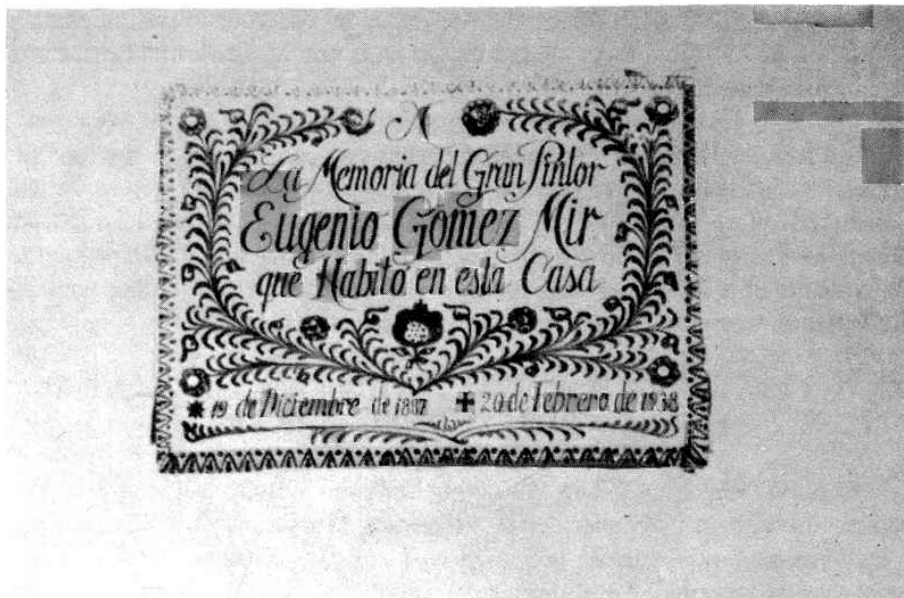 A
La Memoria del Gran Pintor
Eugenio Gomez Mir
que Habitó en esta Casa
19 de Diciembre de 1897 ✚ 20 de Febrero de 1938